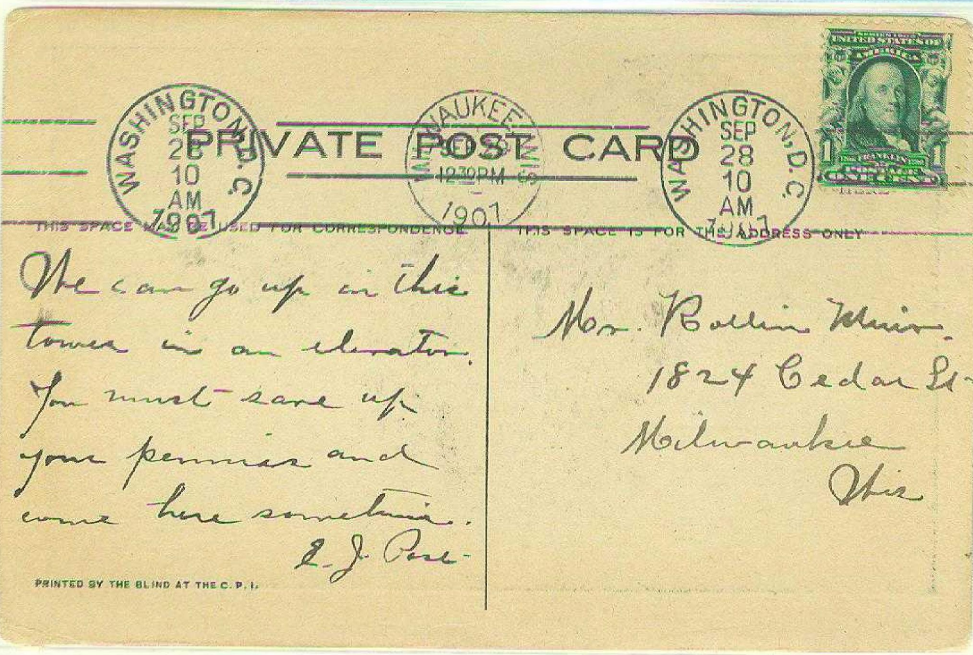 SERIES 1902
UNITED STATES OF
AMERICA
1 FRANKLIN 1
WASHINGTON, D.C.
SEP
28
10
AM
1907
MILWAUKEE, WIS
12 30 PM
1907
WASHINGTON, D.C.
SEP
28
10
AM
1907
PRIVATE POST CARD
THIS SPACE MAY BE USED FOR CORRESPONDENCE
THIS SPACE IS FOR THE ADDRESS ONLY
We can go up in this
tower in an elevator.
You must save up
your pennies and
come here sometime.
E. J.
PRINTED BY THE BLIND AT THE C. P. I.
Mr. Rollin
1824 Cedar St
Milwaukee
Wis